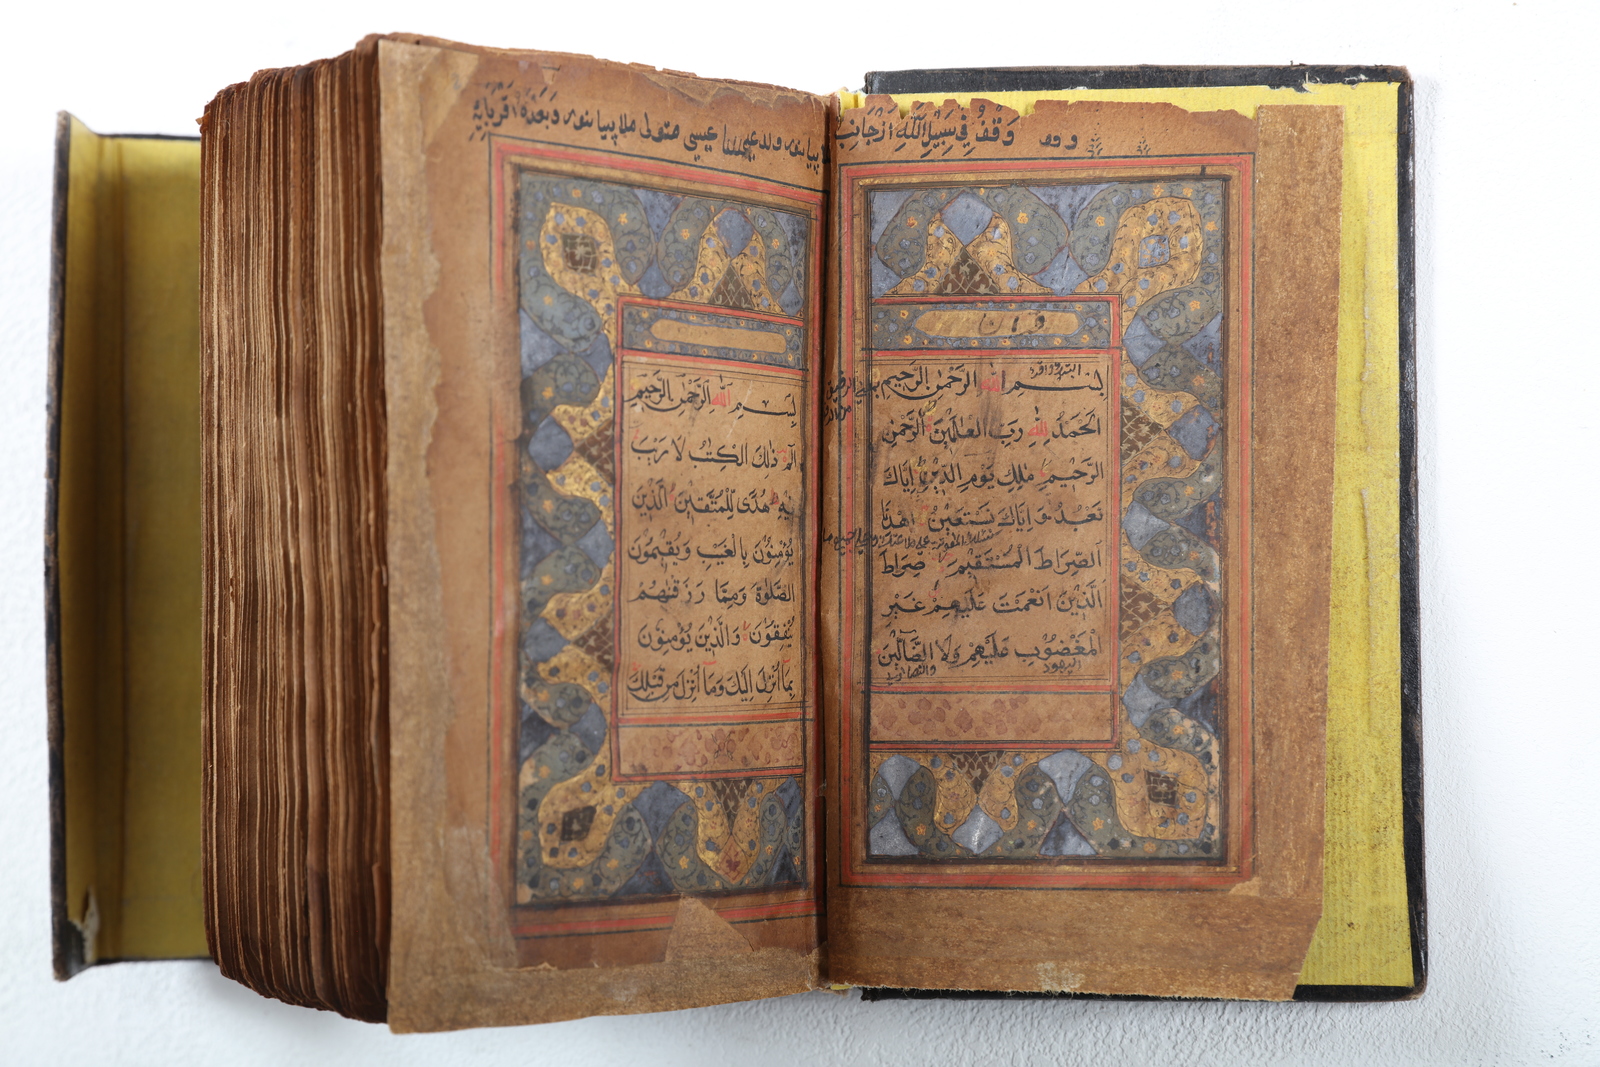 وقف في سبيل الله از جانب
قرآن
بسم الله الرحمن الرحيم
الحمد لله رب العلمين الرحمن
الرحيم ملك يوم الدين اياك
نعبد و اياك نستعين اهدنا
الصراط المستقيم صراط
الذين انعمت عليهم غير
المغضوب عليهم ولا الضالين
اليهود
ولد عيسى متولى ملا
بسم الله الرحمن الرحيم
الم ذلك الكتب لا ريب
فيه هدى للمتقين الذين
يؤمنون بالغيب و يقيمون
الصلوة ومما رزقنهم
ينفقون والذين يؤمنون
بما انزل اليك وما انزل من قبلك